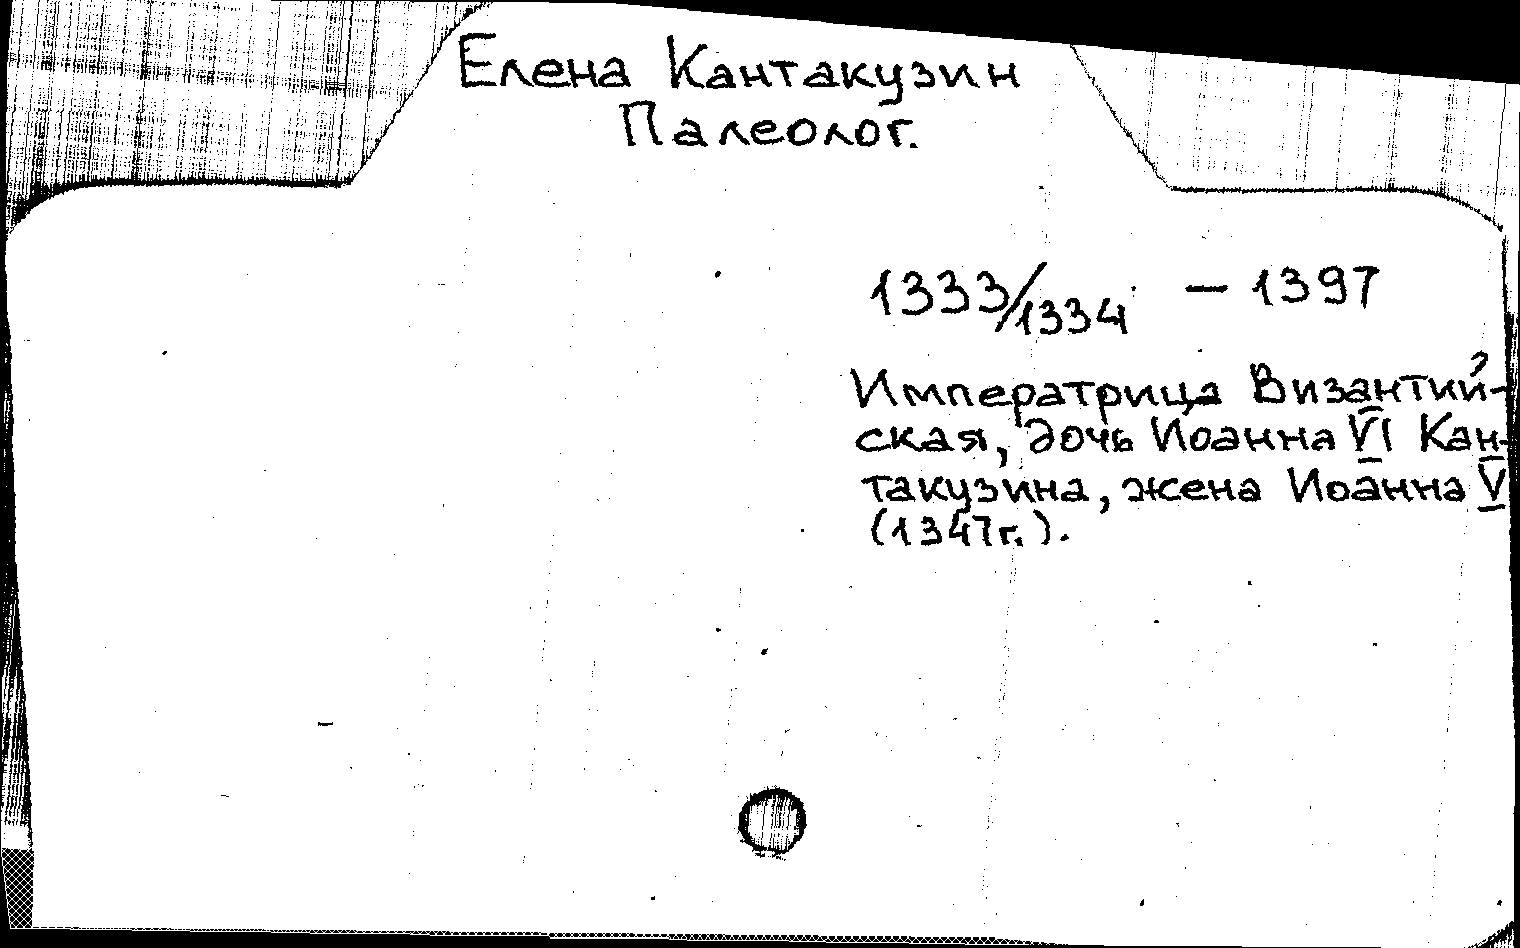 Елена Кантакузин
Палеолог.
1333/1334 – 1397
Императрица Византий-
ская, дочь Иоанна VI Кан-
такузина, жена Иоанна V
(1347г.).